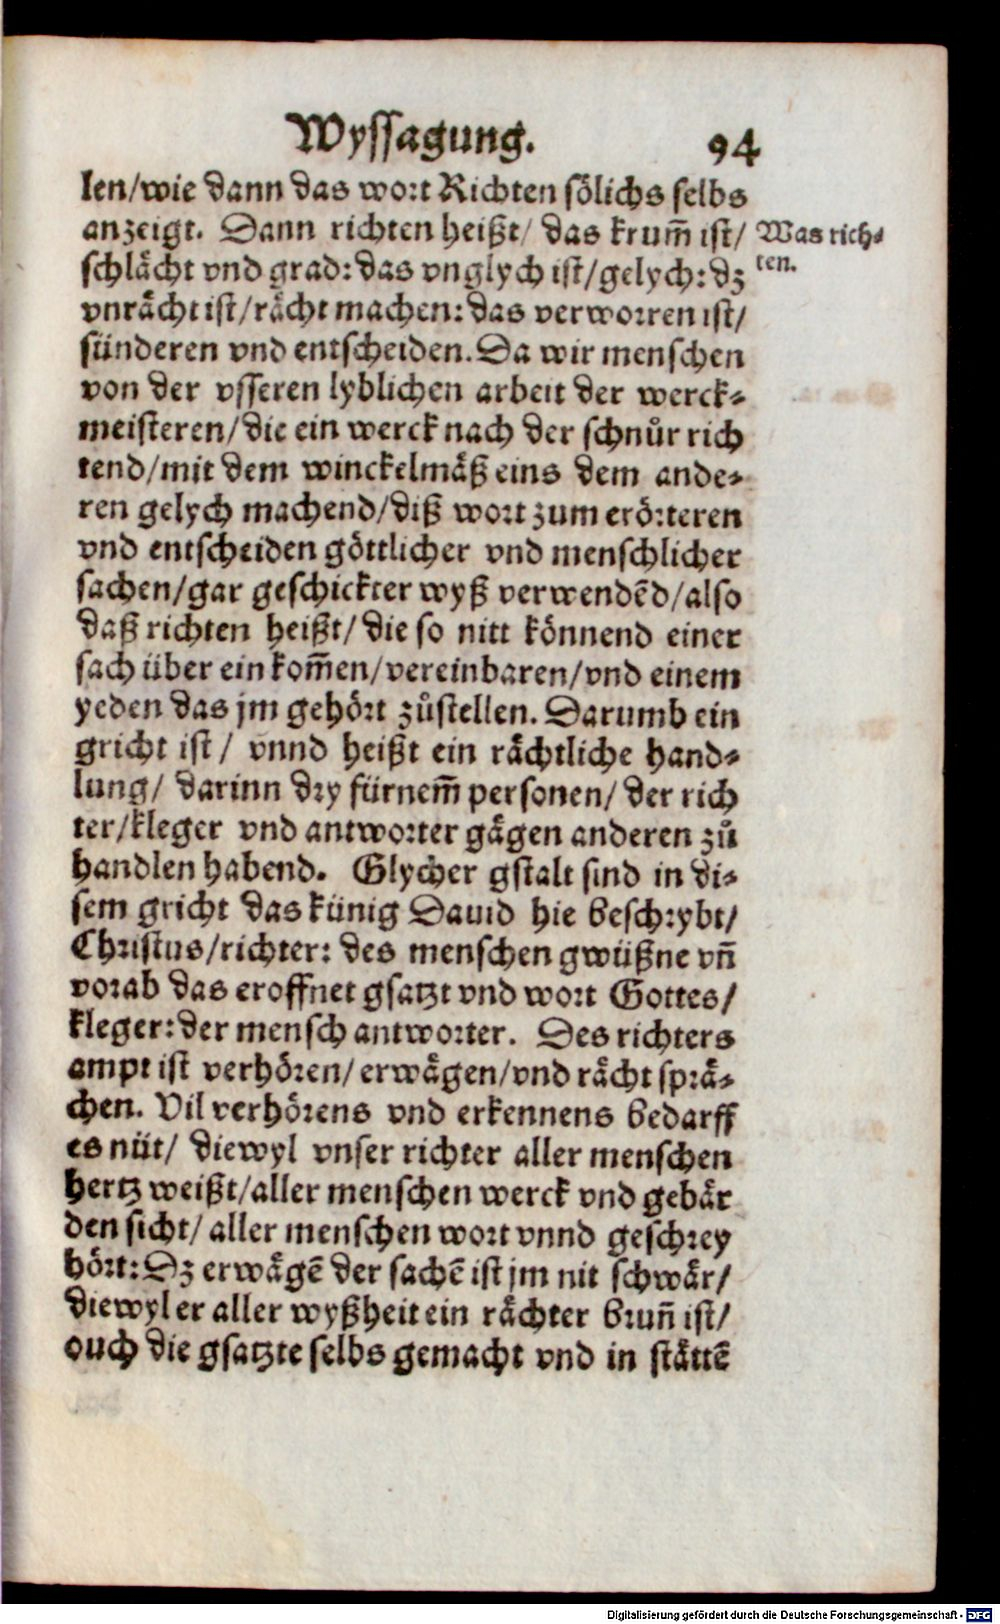 Wyssagung. 94
len/wie dann das wort Richten sölichs selbs
anzeigt. Dann richten heißt/ das krum̃ ist/
Was rich⸗
ten.
schlächt vnd grad: das vnglych ist/gelych: dz
vnrächt ist/rächt machen: das verworren ist/
sünderen vnd entscheiden. Da wir menschen
von der vsseren lyblichen arbeit der werck⸗
meisteren/die ein werck nach der schnůr rich
tend/mit dem winckelmäß eins dem ande⸗
ren gelych machend/diß wort zum erörteren
vnd entscheiden göttlicher vnd menschlicher
sachen/gar geschickter wyß verwendẽd/also
daß richten heißt/ die so nitt könnend einer
sach über ein kom̃en/vereinbaren/vnd einem
yeden das jm gehört zůstellen. Darumb ein
gricht ist/ vnnd heißt ein rächtliche hand⸗
lung/ darinn dry fürnem̃ personen/ der rich
ter/kleger vnd antworter gägen anderen zů
handlen habend. Glycher gstalt sind in di⸗
sem gricht das künig Dauid hie beschrybt/
Christus/richter: des menschen gwüßne vñ
vorab das eroffnet gsatzt vnd wort Gottes/
kleger: der mensch antworter. Des richters
ampt ist verhören/ erwägen/vnd rächt sprä⸗
chen. Vil verhörens vnd erkennens bedarff
es nüt/ diewyl vnser richter aller menschen
hertz weißt/aller menschen werck vnd gebär
den sicht/ aller menschen wort vnnd geschrey
hört: Dz erwägẽ der sachẽ ist jm nit schwär/
diewyl er aller wyßheit ein rächter bruñ ist/
ouch die gsatzte selbs gemacht vnd in stättẽ
Digitalisierung gefördert durch die Deutsche Forschungsgemeinschaft - DFG